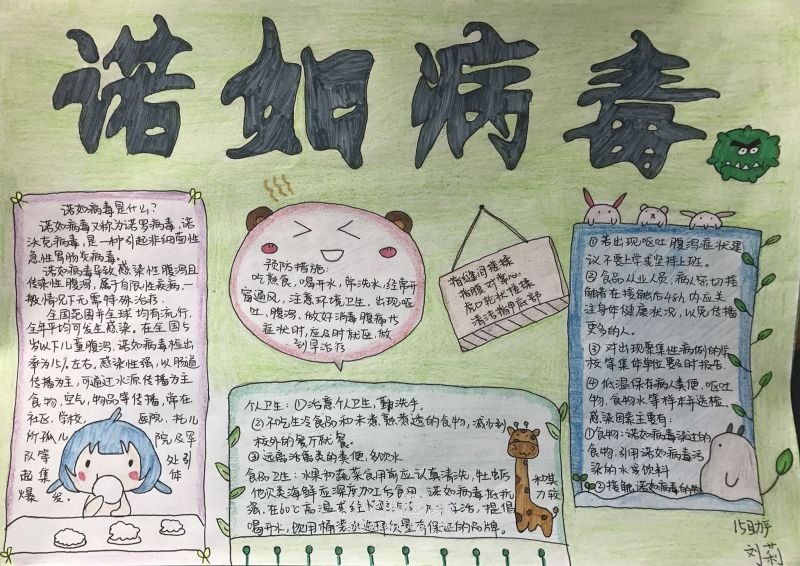 诺如病毒
诺如病毒是什么?
诺如病毒又称为诺罗病毒,诺
沃克病毒,是一种引起非细菌性
急性胃肠炎病毒。
诺如病毒导致感染性腹泻且
传染性腹泻,属于自限性疾病,一
般情况下无需特殊治疗.
全国范围年全球均有流行,
全年平均可发生感染。在全国5
岁以下儿童腹泻,诺如病毒检出
率为15%左右。感染性强,以肠道
传播为主,可通过水源传播为主
食物,空气,物品等传播,常在
社区,学校, 医院,托儿
所孤儿 院及军
队等 处引
起集 体
爆发.
预防措施:
吃熟食,喝开水,常洗水,经常开
窗通风,注意环境卫生,出现呕
吐、腹泻、做好消毒腹痛
症状时,应及时就医,做
到早治疗
指缝间搓揉
指腹对掌心
虎口形状搓揉
清洁指甲后部
①若出现呕吐腹泻症状建
议不要上学或坚持上班。
②食品从业人员,病人密切接
触者在接触后48h内应关
注身体健康状况,以免传播
更多的人。
③对出现聚集性病例的学
校等集体单位要及时报告.
④低温保存病人粪便、呕吐
物、食物水等样本并送检.
感染因素主要有:
①食物:诺如病毒染过的
食物,引用诺如病毒污
染的水或饮料
②接触诺如病毒的
个人卫生:①注意个人卫生,勤洗手。
②不吃生冷食品和未煮熟煮透的食物,减少到
校外的餐厅就餐。
③远离消毒粪的粪便,多饮水
食品卫生:水果和蔬菜食用前应认真清洗,牡蛎
他贝类海鲜应深度加工后食用。诺如病毒抵抗
喝开水,饮用桶装水选择饮量有保证的品牌.
15助产
刘莉